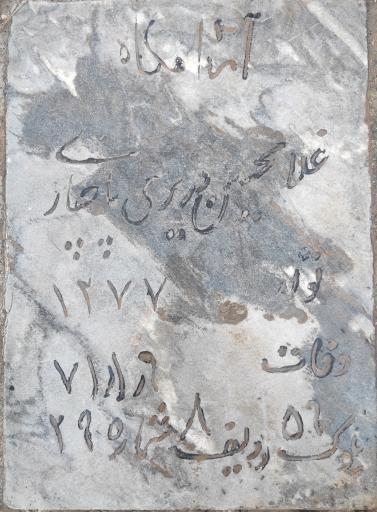 آرامگاه
غلامحسین وزیری پاچنار
تولد
۱۲۷۷
وفات ۷۱/۱/۹
بلوک ۵۶ ردیف ۸ شماره ۲۹۵